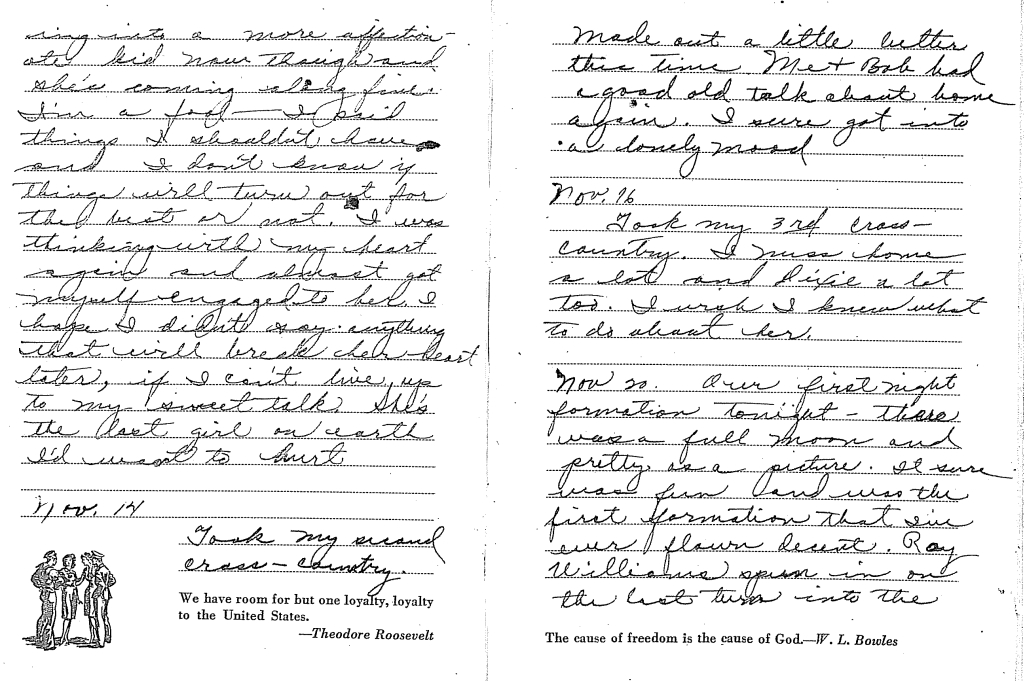 ing into a more affection-
ate kid now though and
she's coming along fine.
I'm a fool — I said
things I shouldn't have
and I don't know if
things will turn out for
the best or not. I was
thinking with my heart
again and almost got
myself engaged to her. I
hope I didn't say anything
that will break her heart
later, if I can't live up
to my sweet talk. She's
the last girl on earth
I'd want to hurt
Nov. 14
Took my second
cross-country.
We have room for but one loyalty, loyalty
to the United States.
—Theodore Roosevelt
Made out a little better
this time. Me + Bob had
a good old talk about home
again. I sure got into
a lonely mood
Nov. 16
Took my 3rd cross-
country. I miss home
a lot and Dixie a lot
too. I wish I knew what
to do about her.
Nov 20. Our first night
formation tonight - there
was a full moon and
pretty as a picture. It sure
was fun and was the
first formation that I've
ever flown decent. Ray
Williams spun in on
the last turn into the
The cause of freedom is the cause of God.—W. L. Bowles